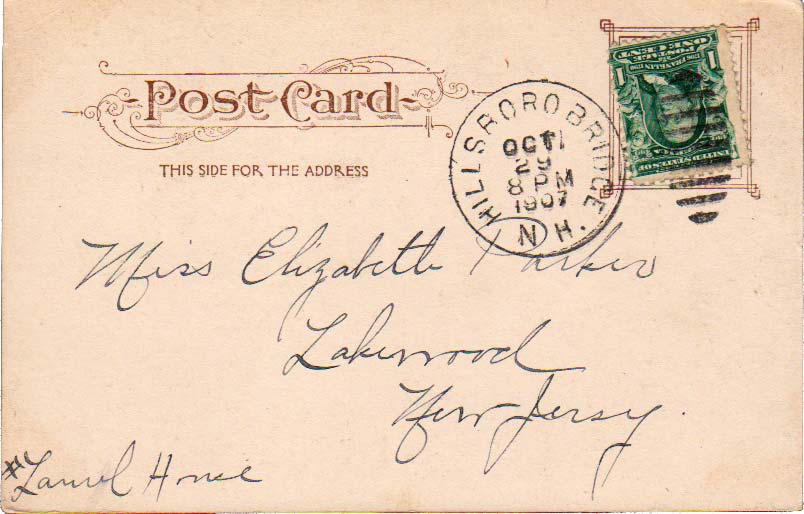 Post Card
THIS SIDE FOR THE ADDRESS
HILLSBORO BRIDGE
OCT
29
8 PM
1907
N H.
ONE CENT
POSTAGE
1706 FRANKLIN 1790
1 1
UNITED STATES OF
Miss Elizabeth Parker
Lakewood
New Jersy.
Laurel House